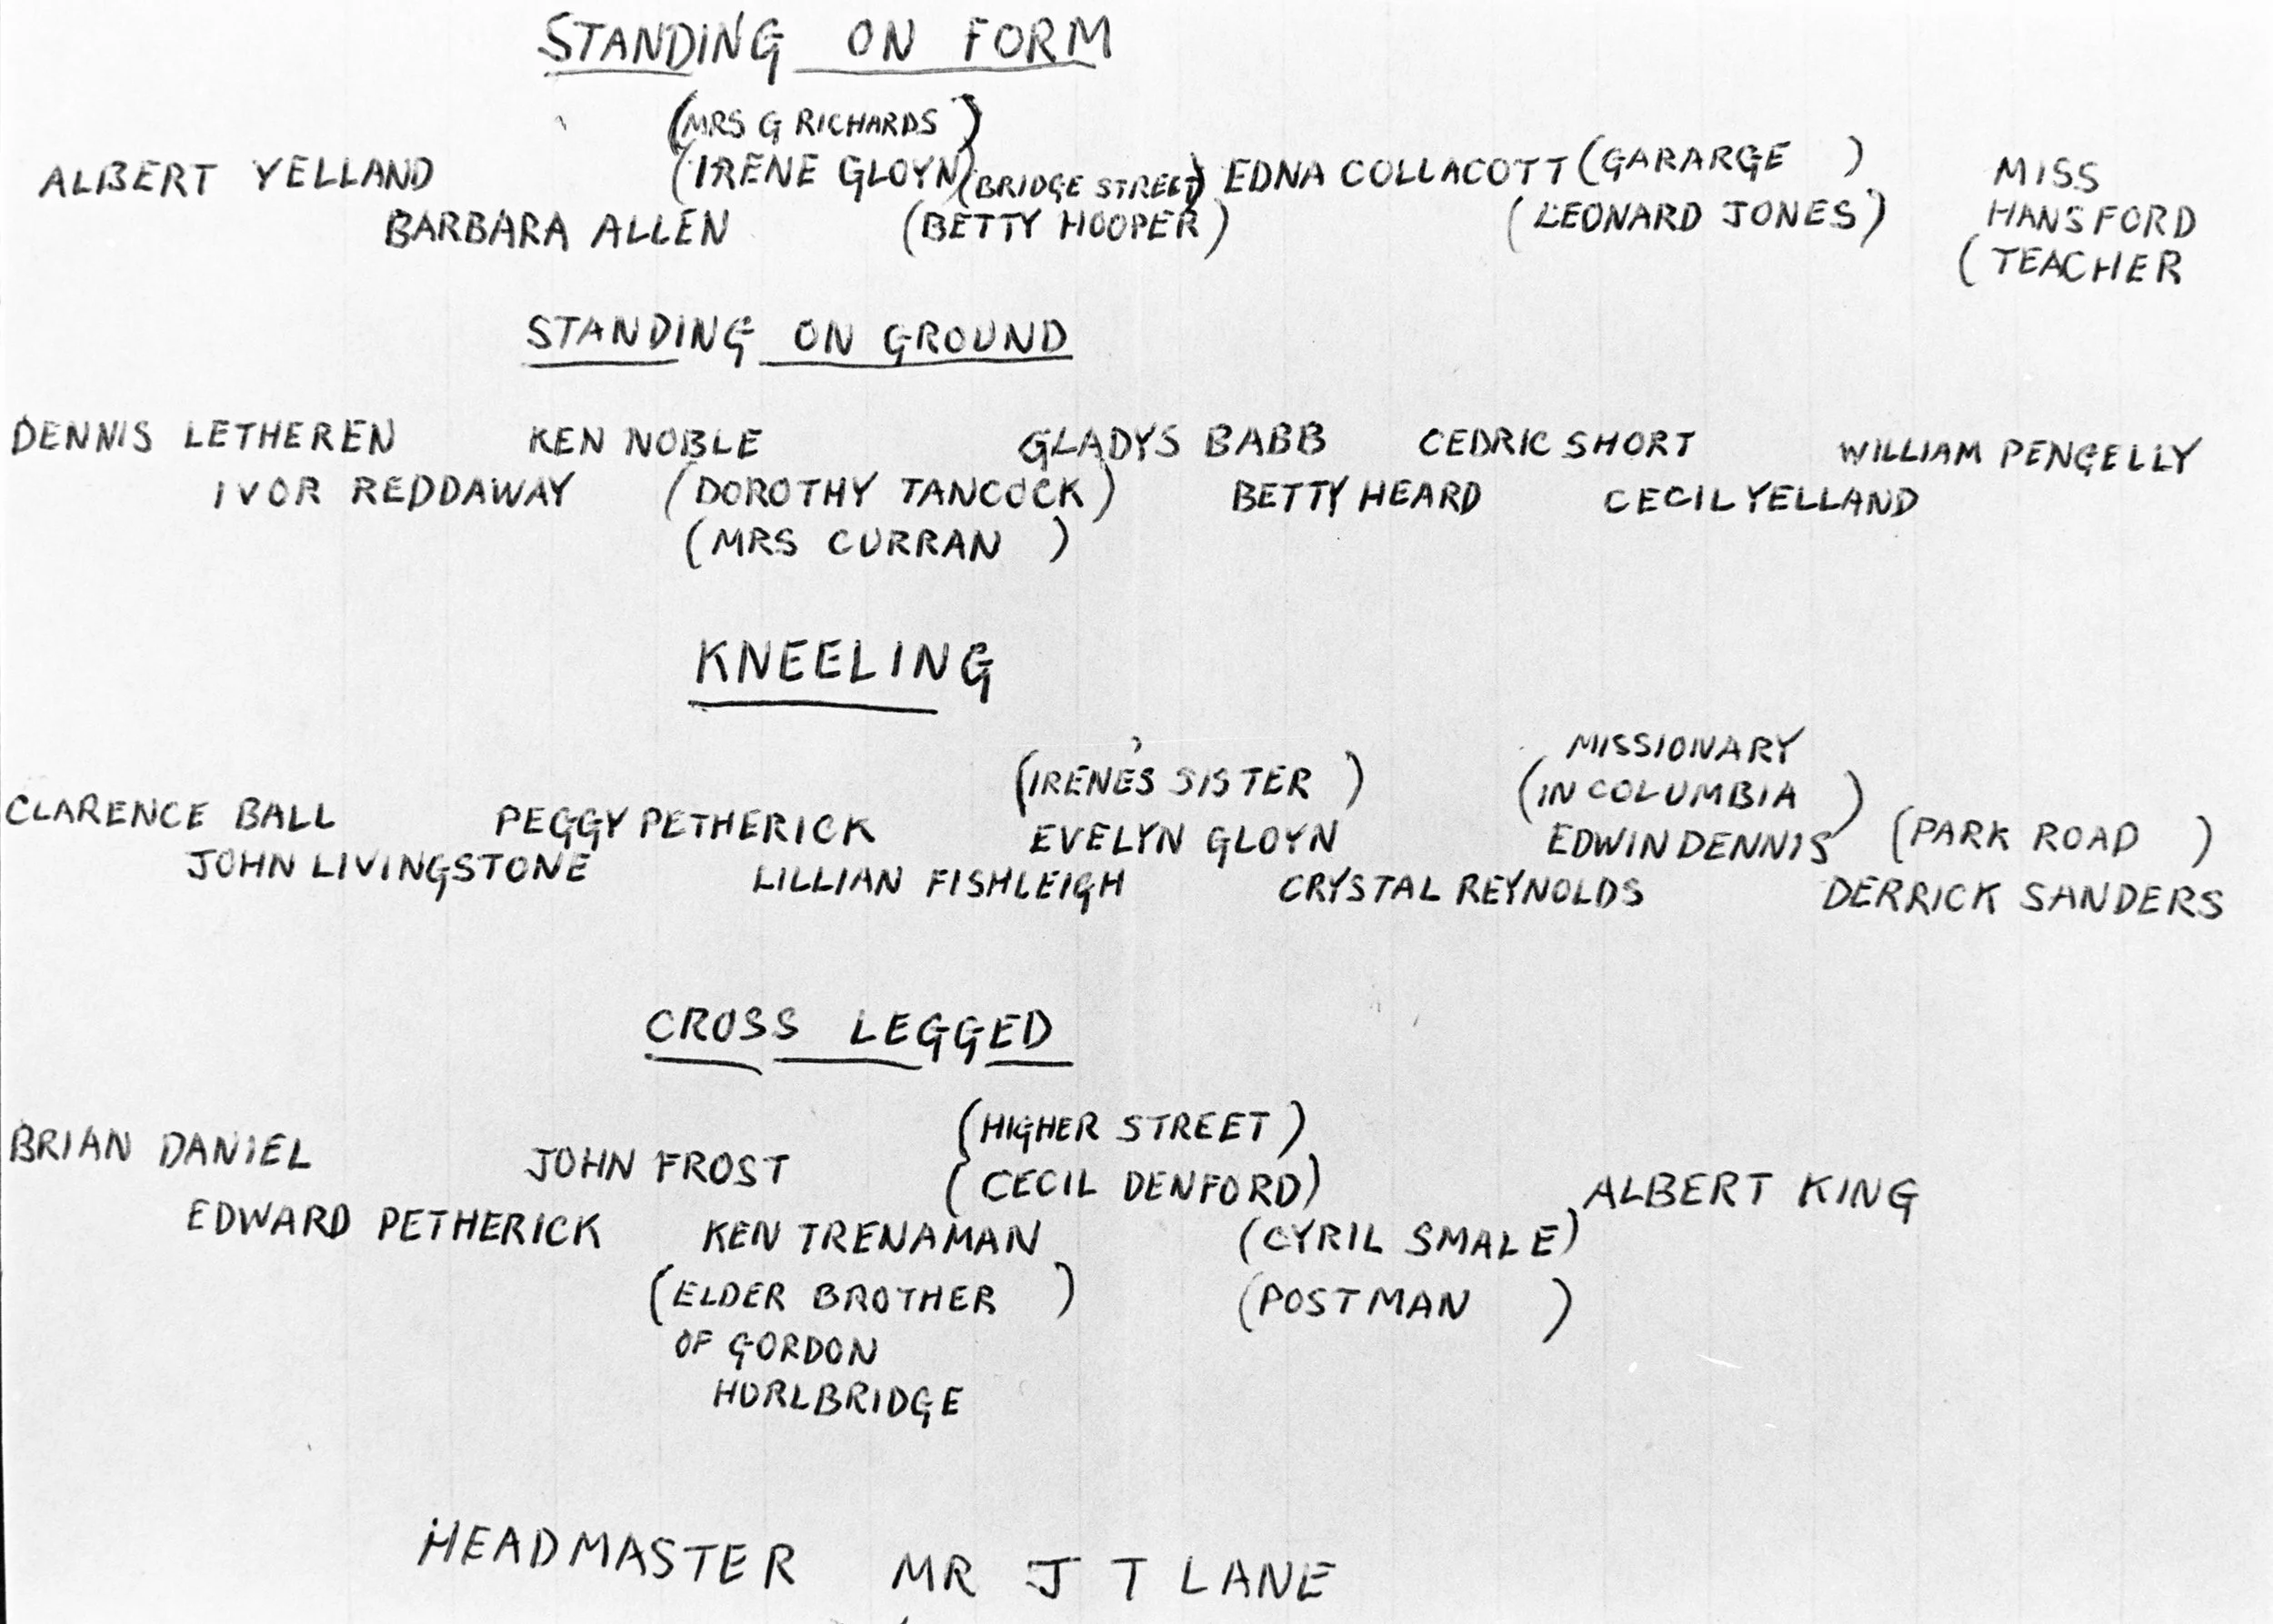 STANDING ON FORM
(MRS G RICHARDS)
ALBERT YELLAND (IRENE GLOYN) (BRIDGE STREET) EDNA COLLACOTT (GARARGE ) MISS
BARBARA ALLEN (BETTY HOOPER) (LEONARD JONES) HANSFORD
(TEACHER
STANDING ON GROUND
DENNIS LETHEREN KEN NOBLE GLADYS BABB CEDRIC SHORT WILLIAM PENGELLY
IVOR REDDAWAY (DOROTHY TANCOCK) BETTY HEARD CECIL YELLAND
(MRS CURRAN )
KNEELING
MISSIONARY
(IRENE'S SISTER ) (IN COLUMBIA )
CLARENCE BALL PEGGY PETHERICK EVELYN GLOYN EDWIN DENNIS (PARK ROAD )
JOHN LIVINGSTONE LILLIAN FISHLEIGH CRYSTAL REYNOLDS DERRICK SANDERS
CROSS LEGGED
(HIGHER STREET )
BRIAN DANIEL JOHN FROST (CECIL DENFORD) ALBERT KING
EDWARD PETHERICK KEN TRENAMAN (CYRIL SMALE)
(ELDER BROTHER ) (POSTMAN )
OF GORDON
HURLBRIDGE
HEADMASTER MR J T LANE